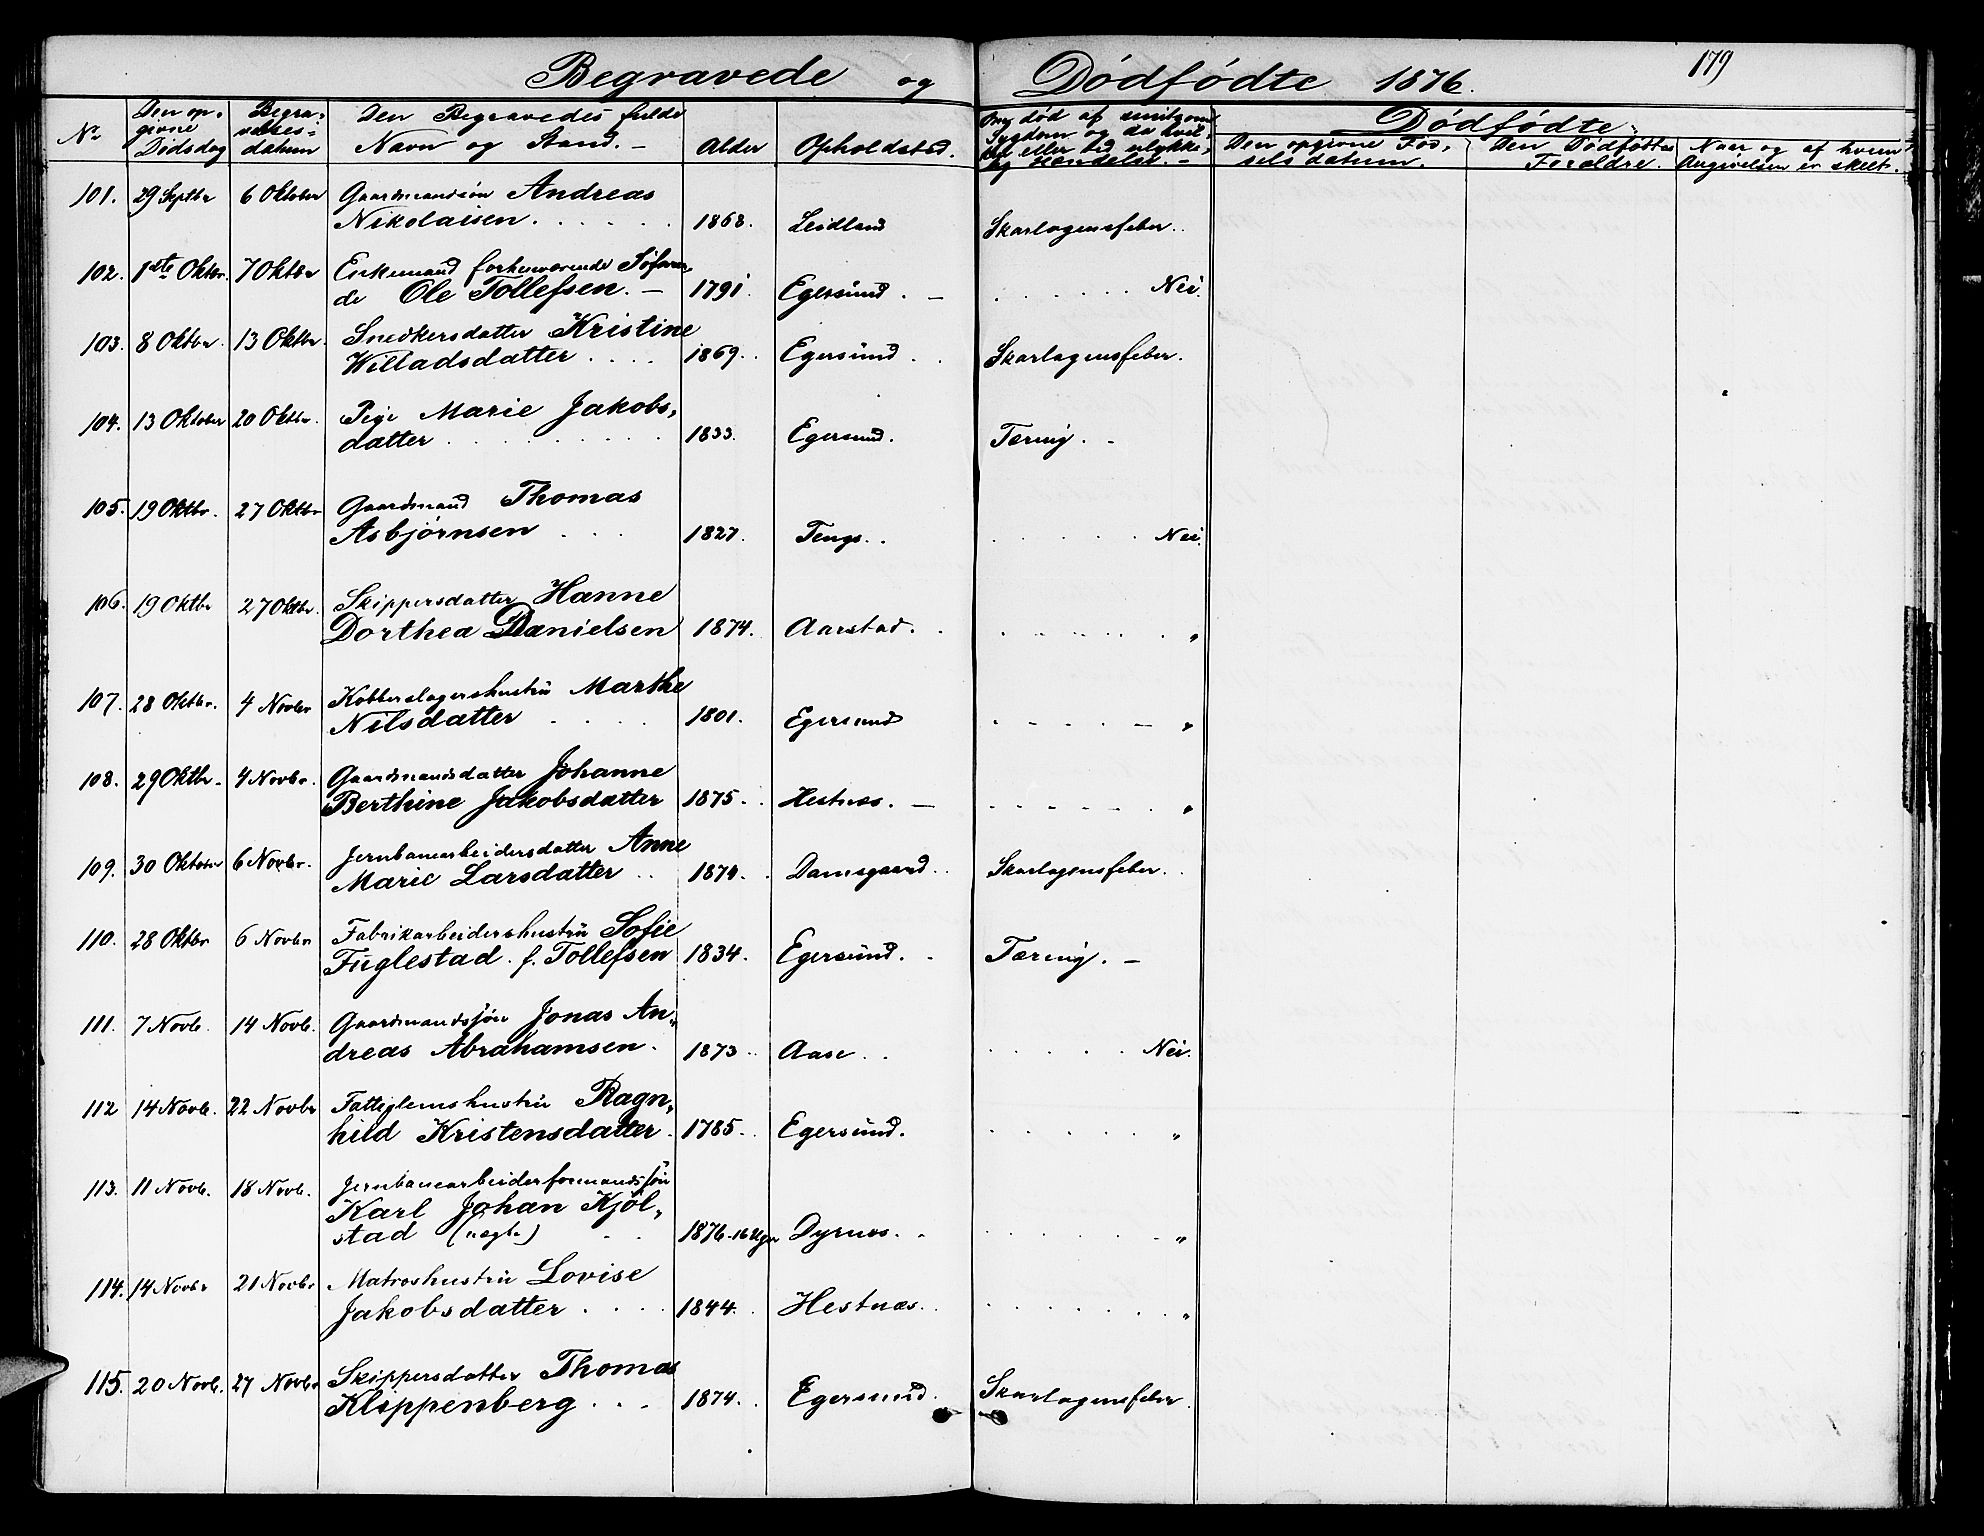 Begravede og Dødfødte 1876.
179
No
Den op-
givne
Dødsdag
Begra-
velses-
datum
Den Begravedes fulde
Navn og Stand. -
Alder
Opholdsted.
Om død af smitsom
Sygdom og da hvil-
ken eller ved ulykke-
lig Hændelse. -
Dødfødte.
Den opgivne Fød-
selsdatum.
Den Dødfødtes
Forældre.
Naar og af hvem
Angivelsen er skeet.
101. 29 Septbr 6 Oktober Gaardmandsøn Andreas
Nikolaisen. 1868. Leidland Skarlagensfeber.
102. 1ste Oktbr. 7 Oktbr Enkemand forhenværende Søfaren
de Ole Tollefsen. - 1791. Egersund. - Nei.
103. 8 Oktbr. 13 Oktbr. Snedkersdatter Kristine
Willadsdatter 1869. Egersund. Skarlagensfeber.
104. 13 Oktober 20 Oktbr. Pige Marie Jakobs-
datter 1833. Egersund. Tæring. -
105. 19 Oktbr. 27 Oktbr Gaardmand Thomas
Asbjørnsen 1827. Tengs. Nei.
106. 19 Oktbr 27 Oktbr. Skippersdatter Hanne
Dorthea Danielsen 1874. Aarstad. "
107. 28 Oktbr. 4 Novbr Kobberslagershustru Marthe
Nilsdatter 1801. Egersund "
108. 29 Oktbr. 4 Novbr. Gaardmandsdatter Johanne
Berthine Jakobsdatter 1875. Hestnæs. - "
109. 30 Oktober 6 Novbr. Jernbanearbeidersdatter Anne
Marie Larsdatter 1874. Damsgaard. Skarlagensfeber.
110. 28 Oktbr 6 Novbr Fabrikarbeidershustru Sofie
Fuglestad. f. Tollefsen 1834. Egersund. Tæring. -
111. 7 Novb. 14 Novb. Gaardmandssøn Jonas An-
dreas Abrahamsen. 1873. Aase. Nei.
112 14 Novb. 22 Novbr Fattiglemshustru Ragn-
hild Kristensdatter. 1785. Egersund. "
113. 11 Novb. 18 Novb. Jernbanearbeiderformandssøn
Karl Johan Kjøl-
stad (uægte) 1876 - 16 Uger Dyrnes. "
114. 14 Novbr 21 Novbr Matroshustru Lovise
Jakobsdatter. 1844. Hestnæs. "
115. 20 Novb. 27 Novbr Skippersdatter Thomas
Klippenberg. 1874. Egersund. Skarlagensfeber.